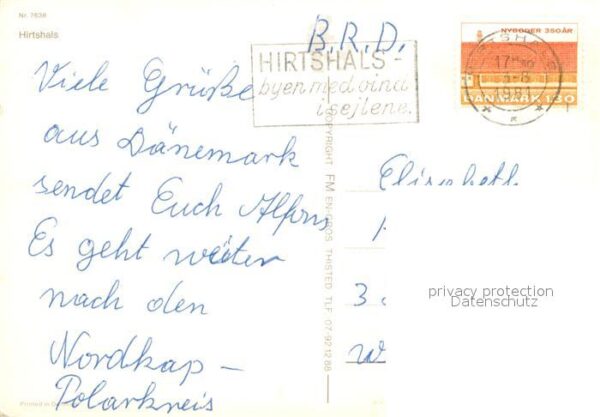 Nr. 7638
Hirtshals
B.R.D.
NYBODER 350 ÅR
HIRTSHALS
1981
DANMARK 130
HIRTSHALS -
byen med vind
i sejlene.
Viele Grüße
aus Dänemark
sendet Euch Alfons
Es geht weiter
nach den
Nordkap -
Polarkreis
COPYRIGHT FM EN GROS THISTED TLF 07-92 12 88
3
privacy protection
Datenschutz
Printed in